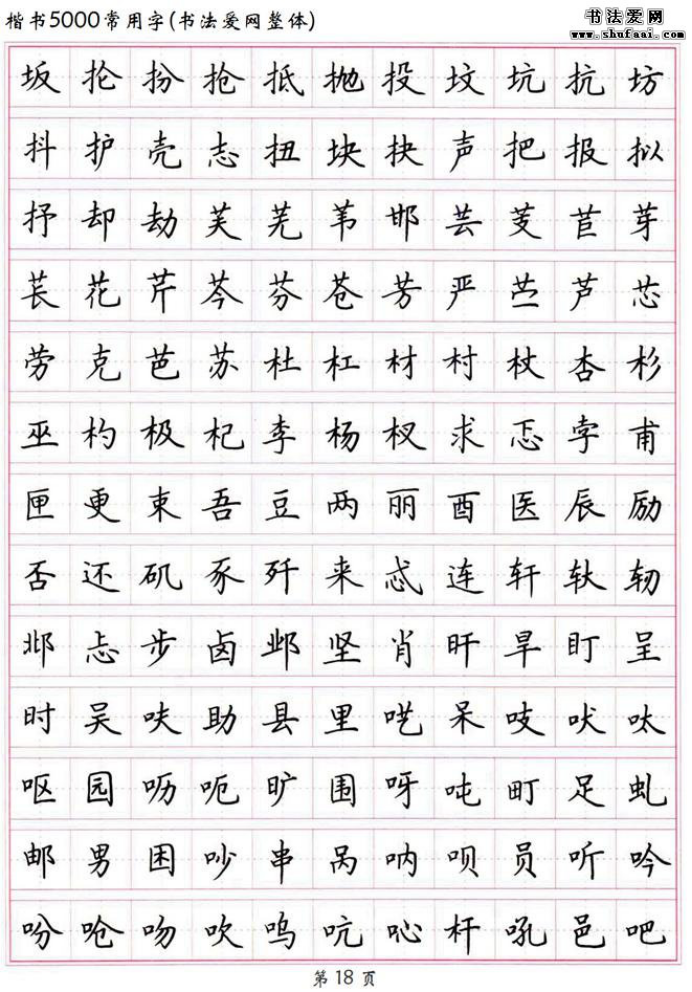 楷书5000常用字(书法爱网整体)
书法爱网
www.shufaai.com
坂抡扮抢抵抛投坟坑抗坊
抖护壳志扭块抉声把报拟
抒却劫芙芜苇邯芸芰苣芽
苌花芹芩芬苍芳严苎芦芯
劳克芭苏杜杠材村杖杏杉
巫杓极杞李杨杈求忑孛甫
匣更束吾豆两丽酉医辰励
否还矶豕歼来忒连轩轪轫
邶忐步卤邺坚肖旰旱盯呈
时吴呋助县里呓呆吱吠呔
呕园呖呃旷围呀吨町足虬
邮男困吵串呙呐呗员听吟
吩呛吻吹呜吭吣杆吼邑吧
第18页